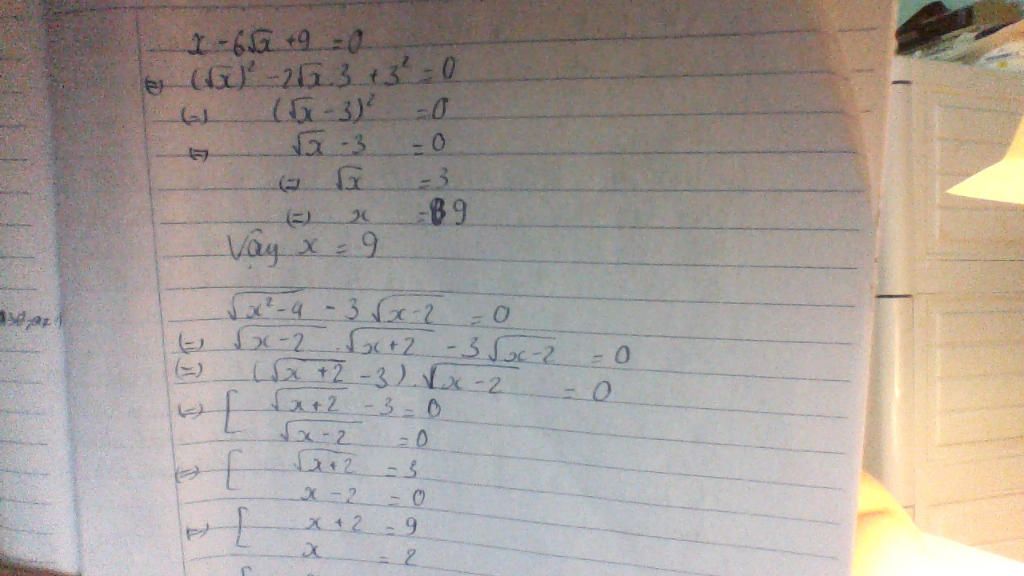 x - 6√x + 9 = 0
(=) (√x)² - 2√x.3 + 3² = 0
(=) (√x - 3)² = 0
(=) √x - 3 = 0
(=) √x = 3
(=) x = 9
Vậy x = 9
√x²-4 - 3√x-2 = 0
(=) √x-2 . √x+2 - 3√x-2 = 0
(=) (√x+2 - 3).√x-2 = 0
(=) [ √x+2 - 3 = 0
√x-2 = 0
(=) [ √x+2 = 3
x - 2 = 0
(=) [ x + 2 = 9
x = 2